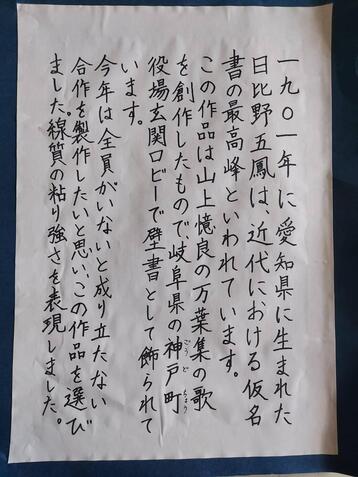 一九〇一年に愛知県に生まれた
日比野五鳳は、近代における仮名
書の最高峰といわれています。
この作品は山上憶良の万葉集の歌
を創作したもので岐阜県の神戸町
ごうど ちょう
役場玄関ロビーで壁書として飾られて
います。
今年は全員がいないと成り立たない
合作を製作したいと思い、この作品を選び
ました。線質の粘り強さを表現しました。